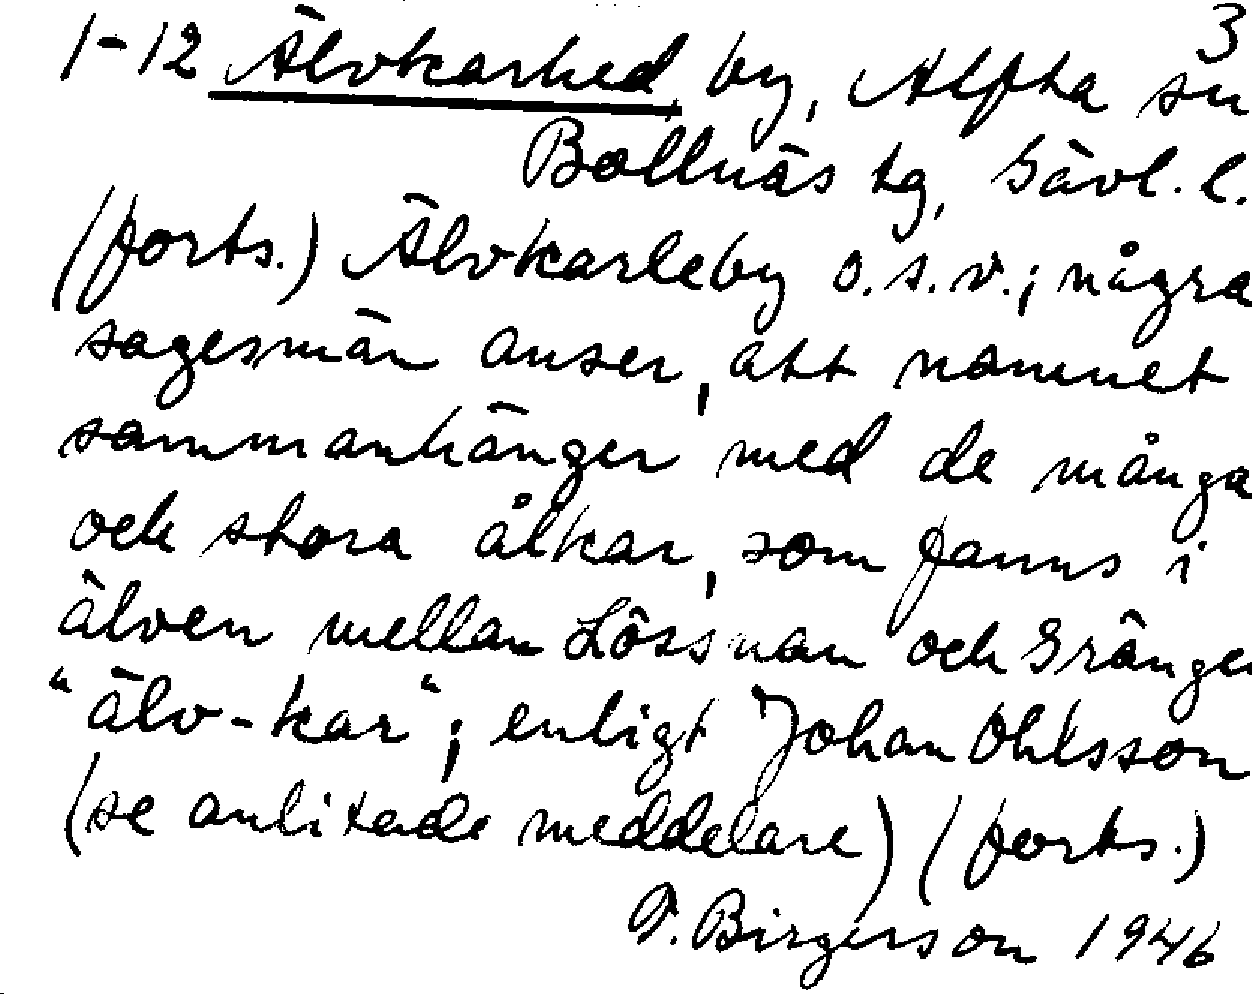 3
1-12 Älvkarhed by, Alfta sn
Bollnäs tg, Gävl. l.
(forts.) Älvkarleby o.s.v.; några
sagesmän anser, att namnet
sammanhänger med de många
och stora ålkar, som fanns i
älven mellan Lössnan och Grängen
"älv-kar"; enligt Johan Ohlsson
(se anlitade meddelare) (forts.)
F. Birgerson 1946